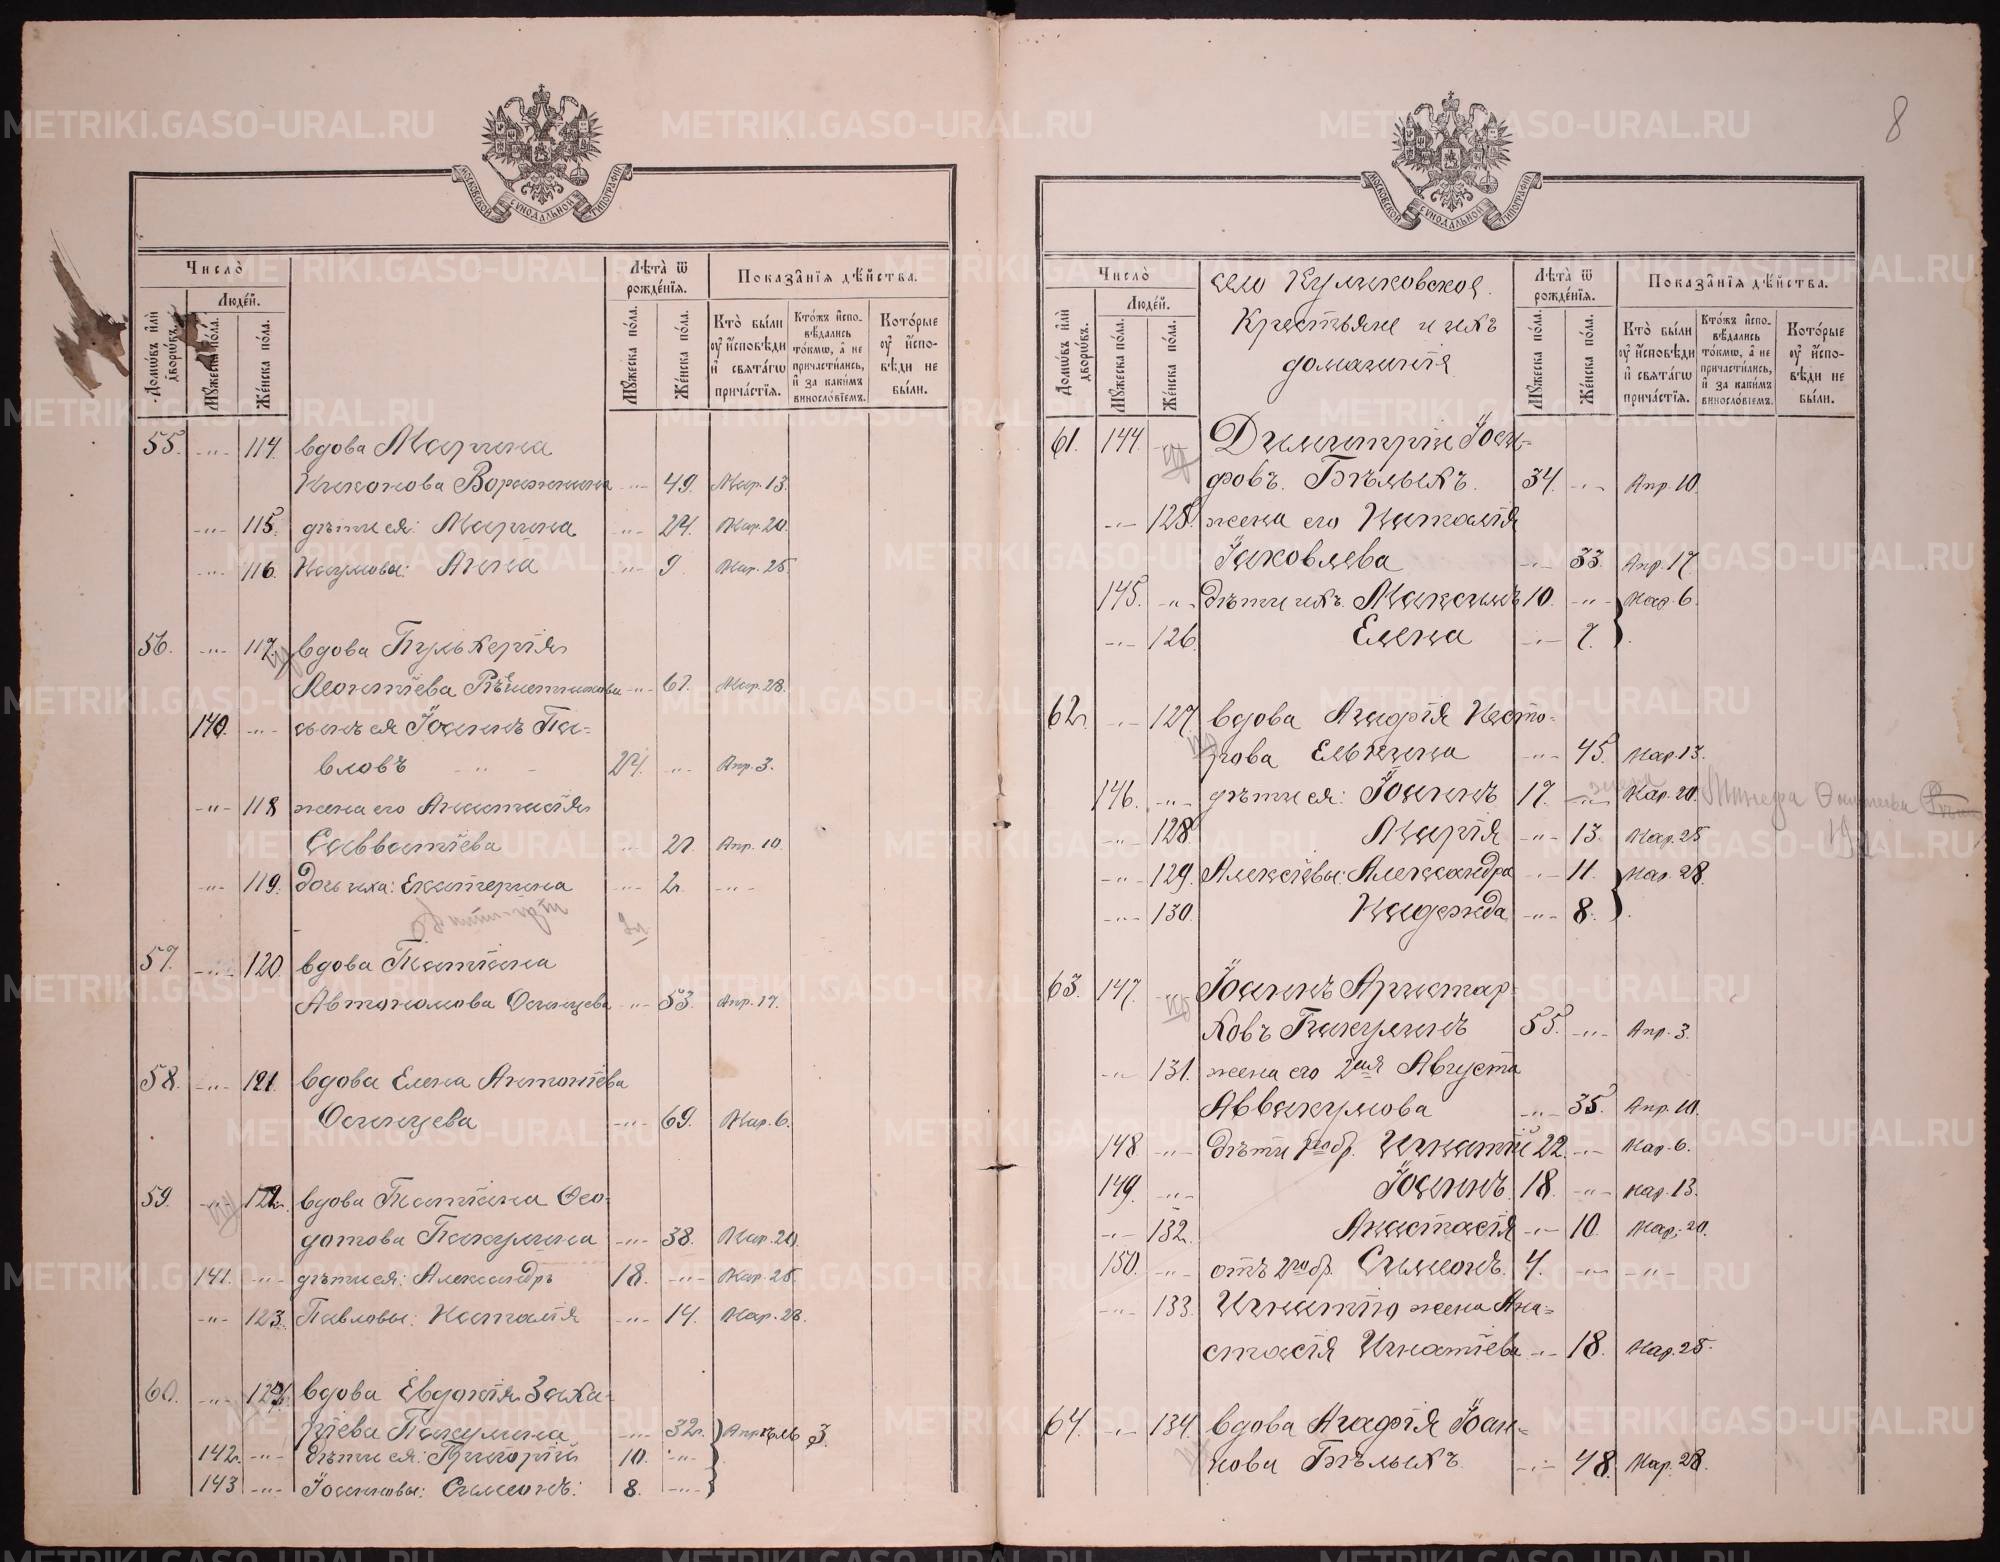 8
МОСКОВСКОЙ СѴНОДАЛЬНОЙ ТИПОГРАФІИ
Число̀
Людей.
Домѡвъ или дворѡвъ.
Мꙋжеска пола.
Женска пола.
Лѣта ѿ рожденїѧ.
Мꙋжеска пола.
Женска пола.
Показанїѧ дѣйства.
Кто были ᲂу исповѣди и свѧтагѡ причастїѧ.
Ктожъ исповѣдались токмѡ, а не причастились, и за какимъ винословїемъ.
Которые ᲂу исповѣди не были.
55. -"- 114. вдова Марина
Никонова Воражнина -"- 49. Мар. 13.
-"- 115. дѣти ея: Марина -"- 24. Мар. 20.
-"- 116. Наумовы: Анна -"- 9. Мар. 25.
56. -"- 117. вдова Пульхерія
Леонтіева Рѣшетникова -"- 61. Мар. 28.
140. -"- сынъ ея Іоаннъ Па=
вловъ 24. -"- Апр. 3.
-"- 118 жена его Анастасія
Савватіева -"- 21. Апр. 10.
-"- 119. дочь ихъ: Екатерина -"- 2. -"-
57. -"- 120. вдова Татіана
Автономова Осинцева -"- 53. Апр. 17.
58. -"- 121. вдова Елена Антоніева
Осинцева -"- 69. Мар. 6.
59. -"- 122. вдова Татіана Ѳео-
дотова Пакулина -"- 38. Мар. 20.
141. -"- дѣти ея: Александръ 18. -"- Мар. 25.
-"- 123. Павловы: Наталія -"- 14. Мар. 28.
60. -"- 124. вдова Евдокія Заха-
ріева Пакулина -"- 32. Апрѣль 3.
142. -"- дѣти ея: Григорій 10. -"-
143 -"- Іоанновы: Сѵмеонъ: 8. -"-
МОСКОВСКОЙ СѴНОДАЛЬНОЙ ТИПОГРАФІИ
Число̀
Людей.
Домѡвъ или дворѡвъ.
Мꙋжеска пола.
Женска пола.
село Куликовское.
Крестьяне и ихъ
домашнія
Лѣта ѿ рожденїѧ.
Мꙋжеска пола.
Женска пола.
Показанїѧ дѣйства.
Кто были ᲂу исповѣди и свѧтагѡ причастїѧ.
Ктожъ исповѣдались токмѡ, а не причастились, и за какимъ винословїемъ.
Которые ᲂу исповѣди не были.
61. 144. -"- Димитрій Іоси-
фовъ Бѣлыхъ. 34. -"- Апр. 10.
-"- 125. жена его Наталія
Іаковлева -"- 33. Апр. 17.
145. -"- дѣти ихъ. Максимъ 10. -"- Мар. 6.
-"- 126. Елена -"- 7.
62. -"- 127. вдова Агафія Несто-
рова Ельцина -"- 45. Мар. 13.
146. -"- дѣти ея: Іоаннъ 17. -"- Мар. 20.
-"- 128. Марія -"- 13. Мар. 25
-"- 129. Алексіевы: Александра -"- 11. Мар. 28.
-"- 130. Надежда -"- 8.
63. 147. -"- Іоаннъ Аристар-
ховъ Пакулинъ 55. -"- Апр. 3.
-"- 131. жена его 2ая Августа
Аввакумова -"- 35. Апр. 10.
148. -"- дѣти 1го бр. Игнатій 22. -"- Мар. 6.
149. -"- Іоаннъ 18. -"- Мар. 13.
-"- 132. Анастасія -"- 10. Мар. 20.
150. -"- отъ 2го бр. Сѵмеонъ. 4. -"- -"-
-"- 133. Игнатію жена Ана=
стасія Игнатіева -"- 18. Мар. 25.
64. -"- 134. вдова Агафія Іоан-
нова Бѣлыхъ. -"- 48. Мар. 28.
METRIKI.GASO-URAL.RU